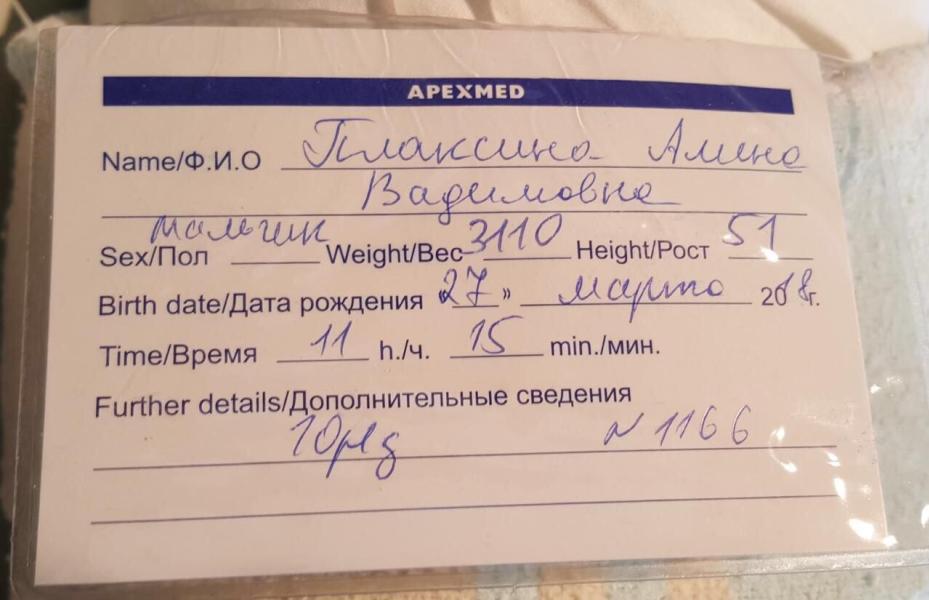 APEXMED
Name/Ф.И.О Плаксина Амина
Вадимовна
мальчик
Sex/Пол Weight/Вес 3110 Height/Рост 51
Birth date/Дата рождения «27» марта 2018г.
Time/Время 11 h./ч. 15 min./мин.
Further details/Дополнительные сведения
N 1166